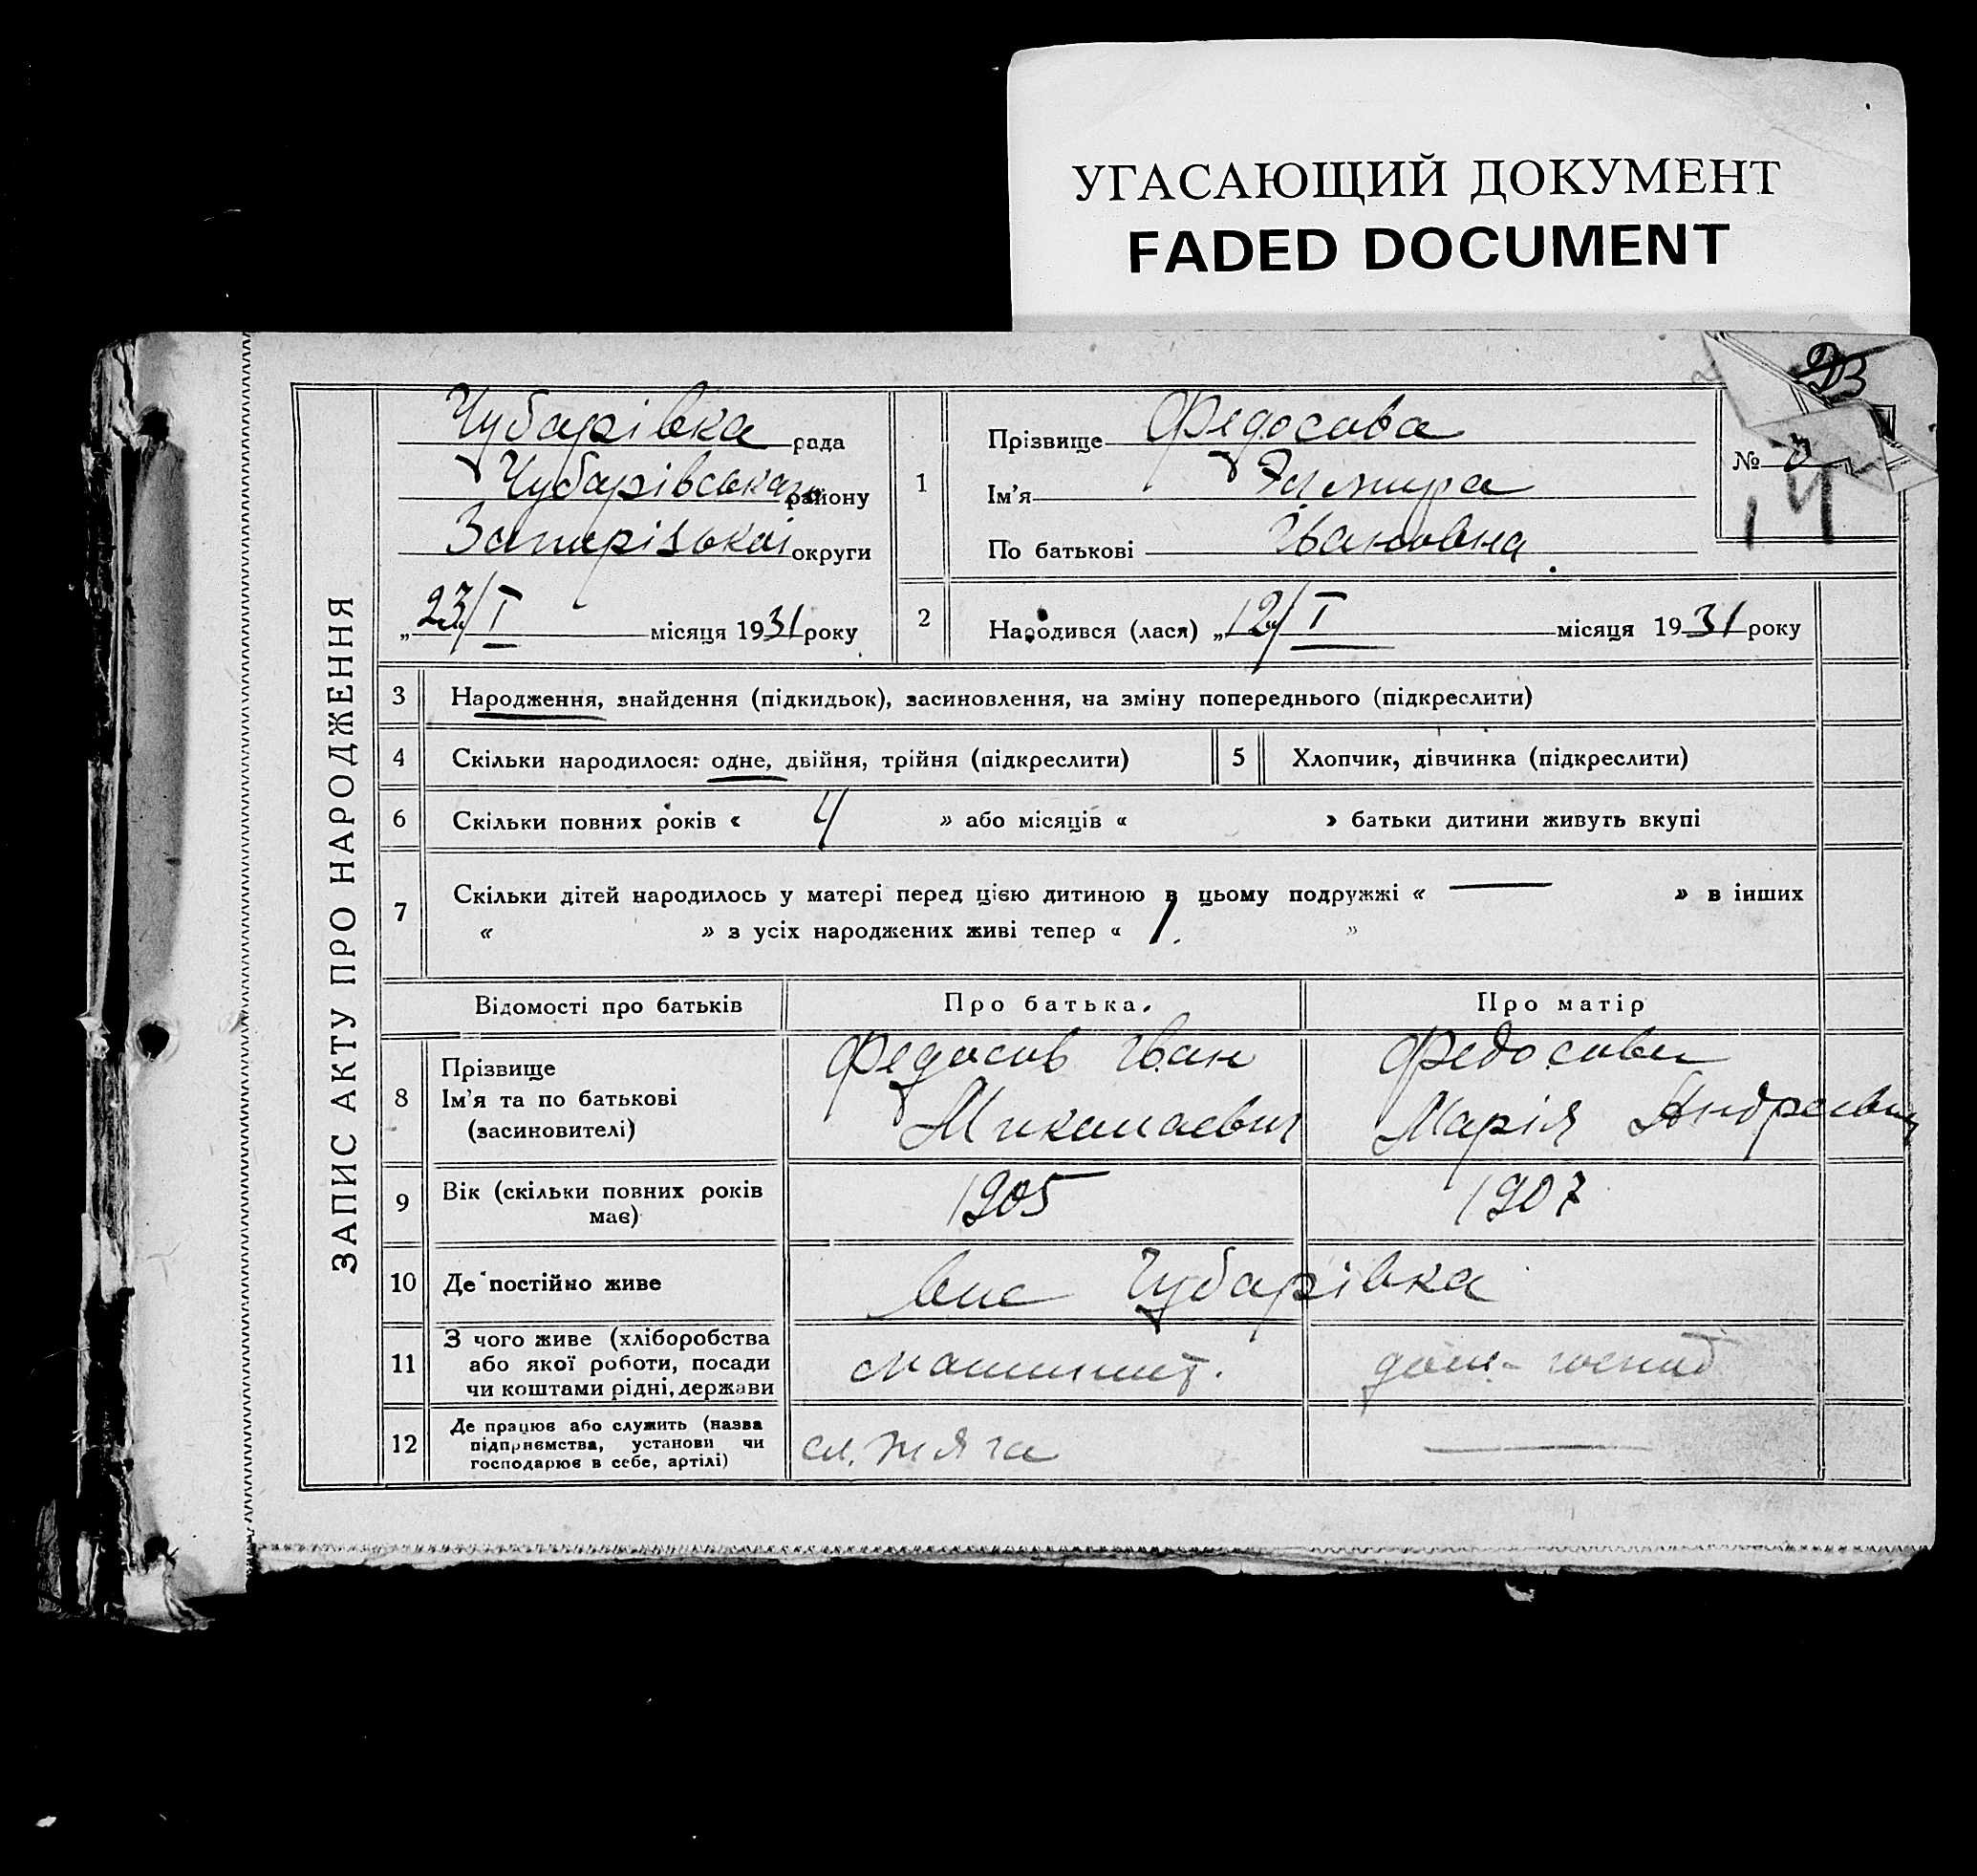 УГАСАЮЩИЙ ДОКУМЕНТ
FADED DOCUMENT
ЗАПИС АКТУ ПРО НАРОДЖЕННЯ
Чубарівка рада
Чубарівського району
округи
„23/I місяця 1931 року
1 Прізвище Федосова
Ім’я
По батькові Івановна
№
14
2 Народився (лася) „12/I місяця 1931 року
3 Народження, знайдення (підкидьок), засиновлення, на зміну попереднього (підкреслити)
4 Скільки народилося: одне, двійня, трійня (підкреслити) 5 Хлопчик, дівчинка (підкреслити)
6 Скільки повних років « 4 » або місяців « » батьки дитини живуть вкупі
7 Скільки дітей народилось у матері перед цією дитиною в цьому подружжі « — » в інших
« » з усіх народжених живі тепер « 1. »
Відомості про батьків Про батька. Про матір
8 Прізвище Ім’я та по батькові (засиновителі)
Федосов Іван
Миколаевич
Федосова
Марія Андреевна
9 Вік (скільки повних років має) 1905 1907
10 Де постійно живе Чубарівка
11 З чого живе (хліборобства або якої роботи, посади чи коштами рідні, держави
машинист. дом-господ
12 Де працює або служить (назва підприємства, установи чи господарює в себе, артілі)
сл. тяга —